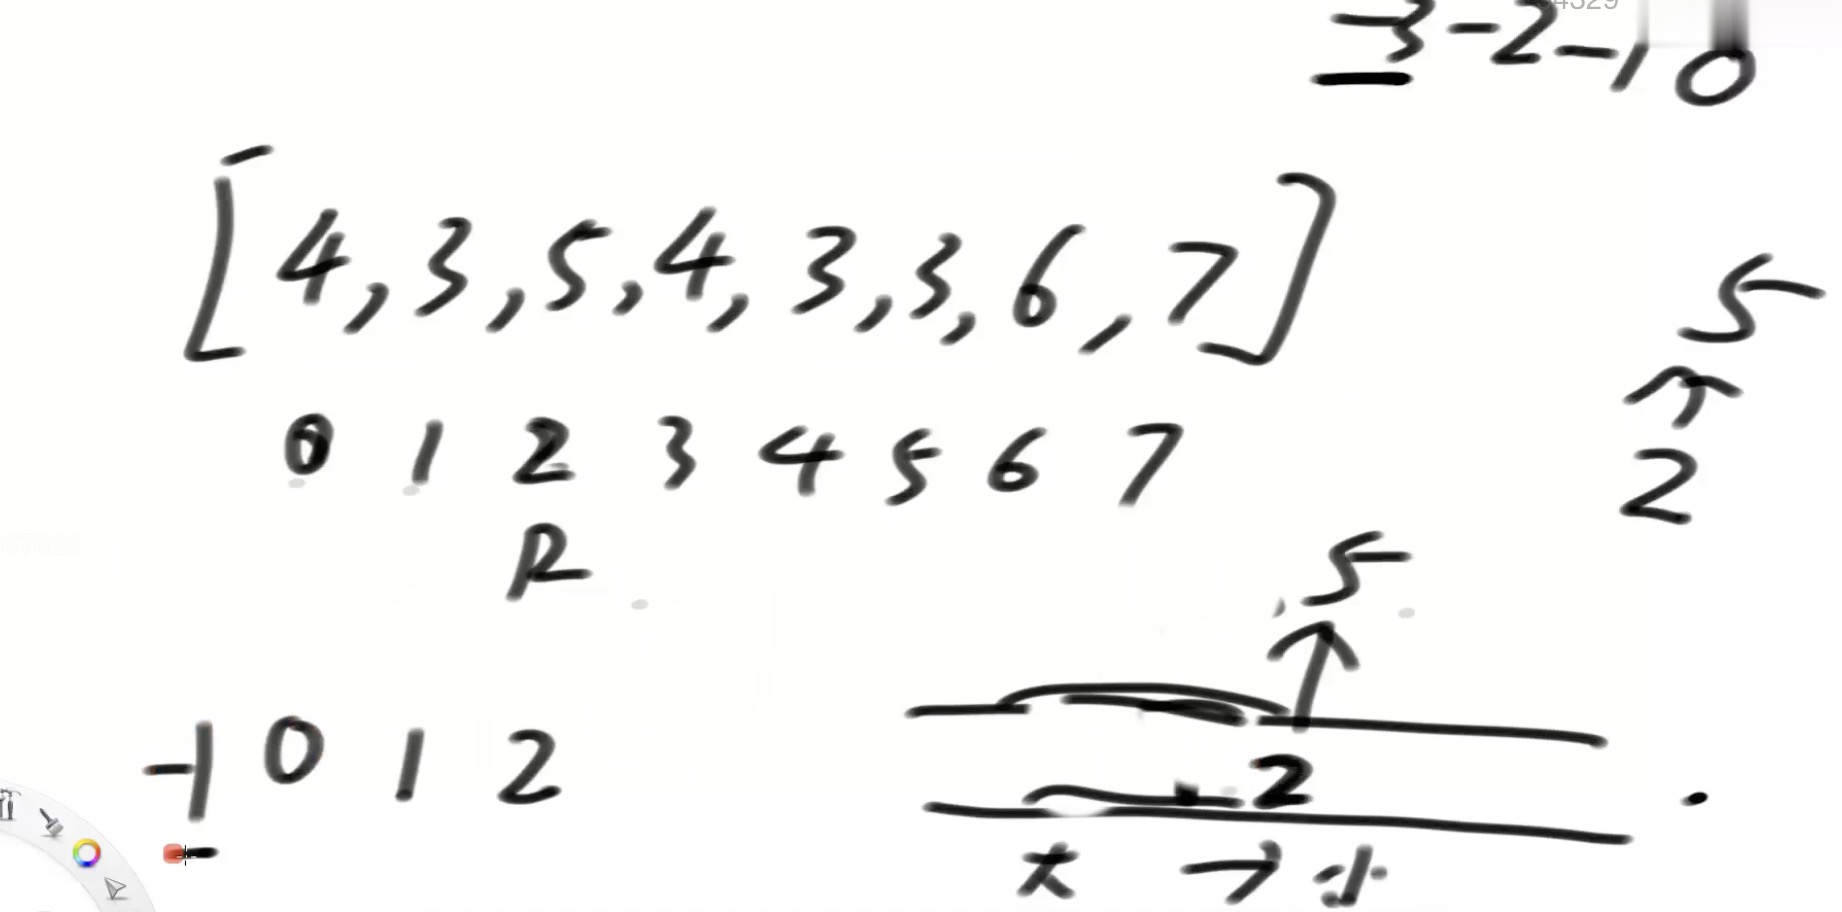 -3 -2 -1 0
[4,3,5,4,3,3,6,7]
5
0 1 2 3 4 5 6 7
2
R
5
-1 0 1 2
2
大 → 小